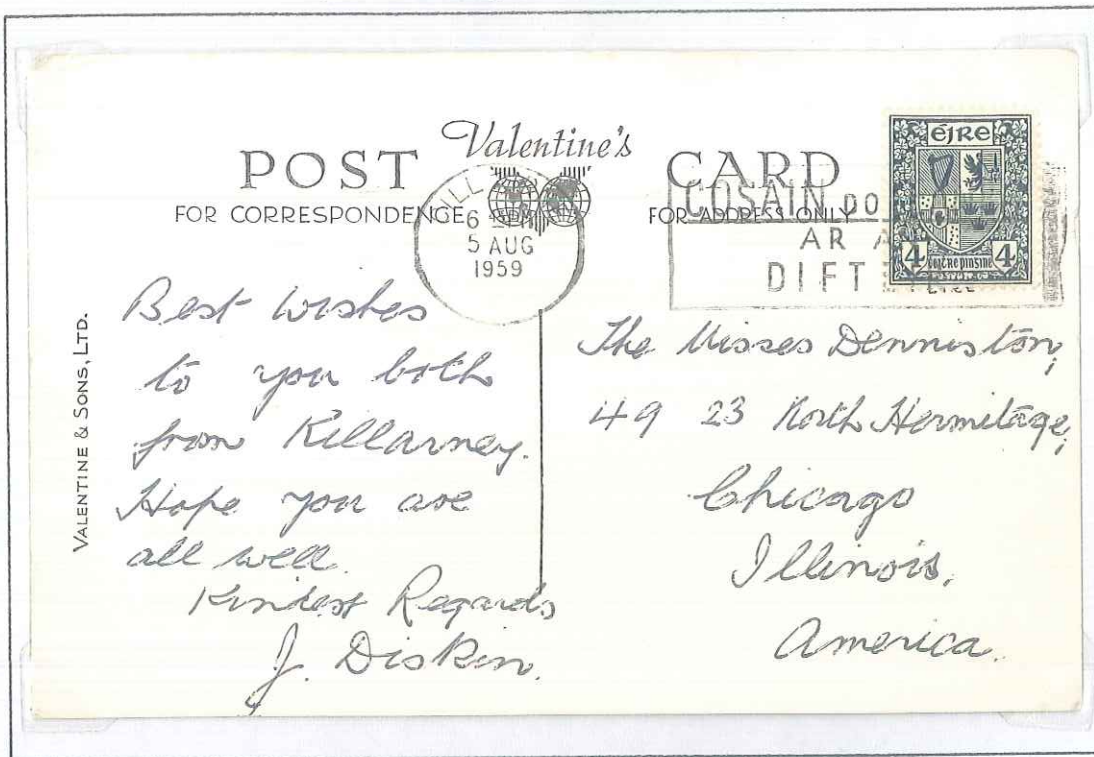 Valentine's
POST CARD
FOR CORRESPONDENCE FOR ADDRESS ONLY
6 PM
5 AUG
1959
COSAIN DO
AR
DIFT
ÉIRE
4 4
VALENTINE & SONS, LTD.
Best Wishes
to you both
from Killarney.
Hope you are
all well.
Kindest Regards
J. Diskin.
The Misses Denniston,
49 23 North Hermitage,
Chicago
Illinois,
America.